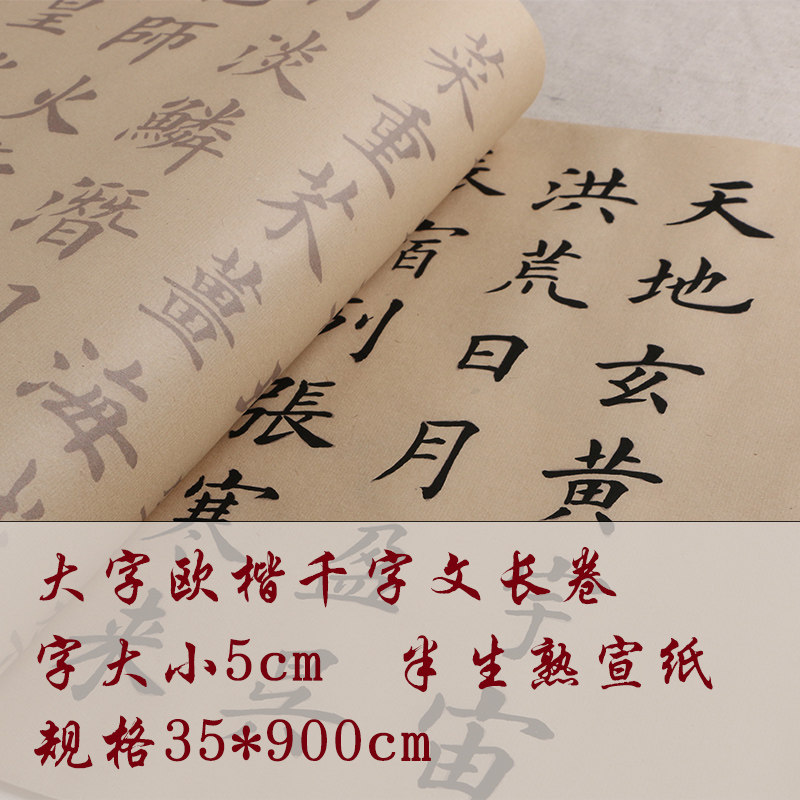 天地玄黄宇宙
洪荒日月盈昃
辰宿列張寒来
菜重芥薑海
淡鱗潛
師火
皇
大字欧楷千字文长卷
字大小5cm 半生熟宣纸
规格35*900cm